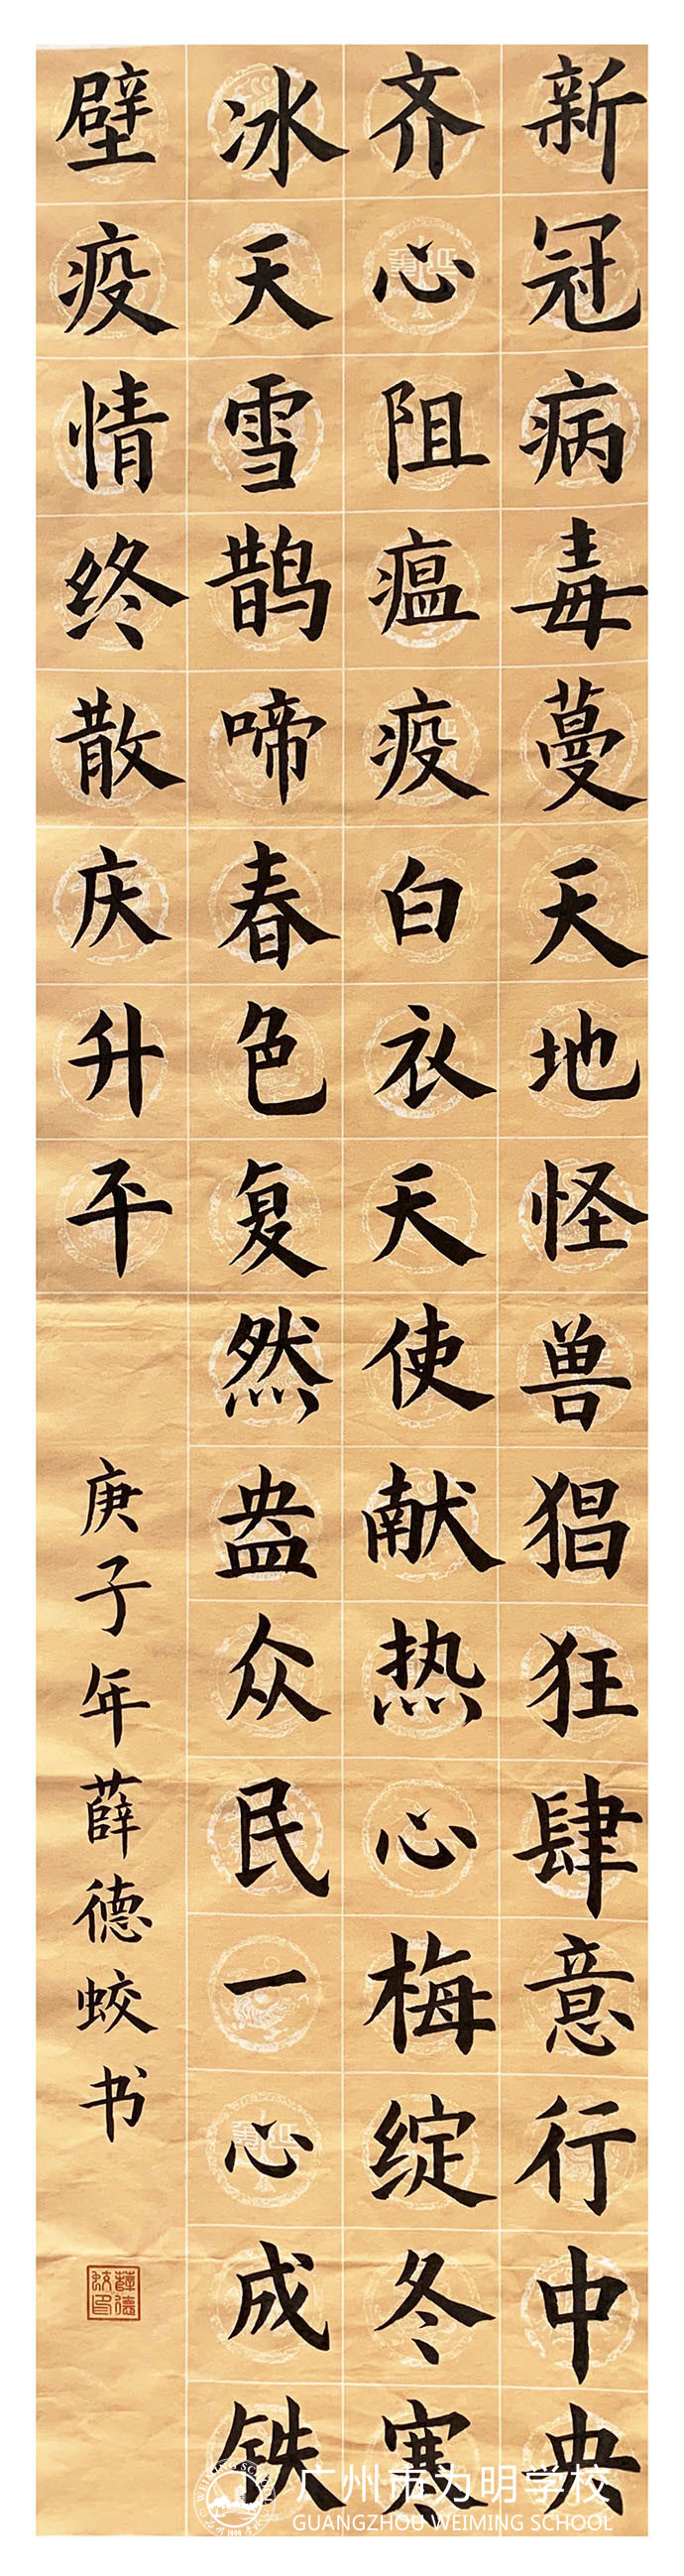 新冠病毒蔓天地怪兽猖狂肆意行中央
齐心阻瘟疫白衣天使献热心梅绽冬寒
冰天雪鹊啼春色复然盎众民一心成铁
壁疫情终散庆升平
庚子年薛德蛟书
薛德蛟印
广州市为明学校
GUANGZHOU WEIMING SCHOOL